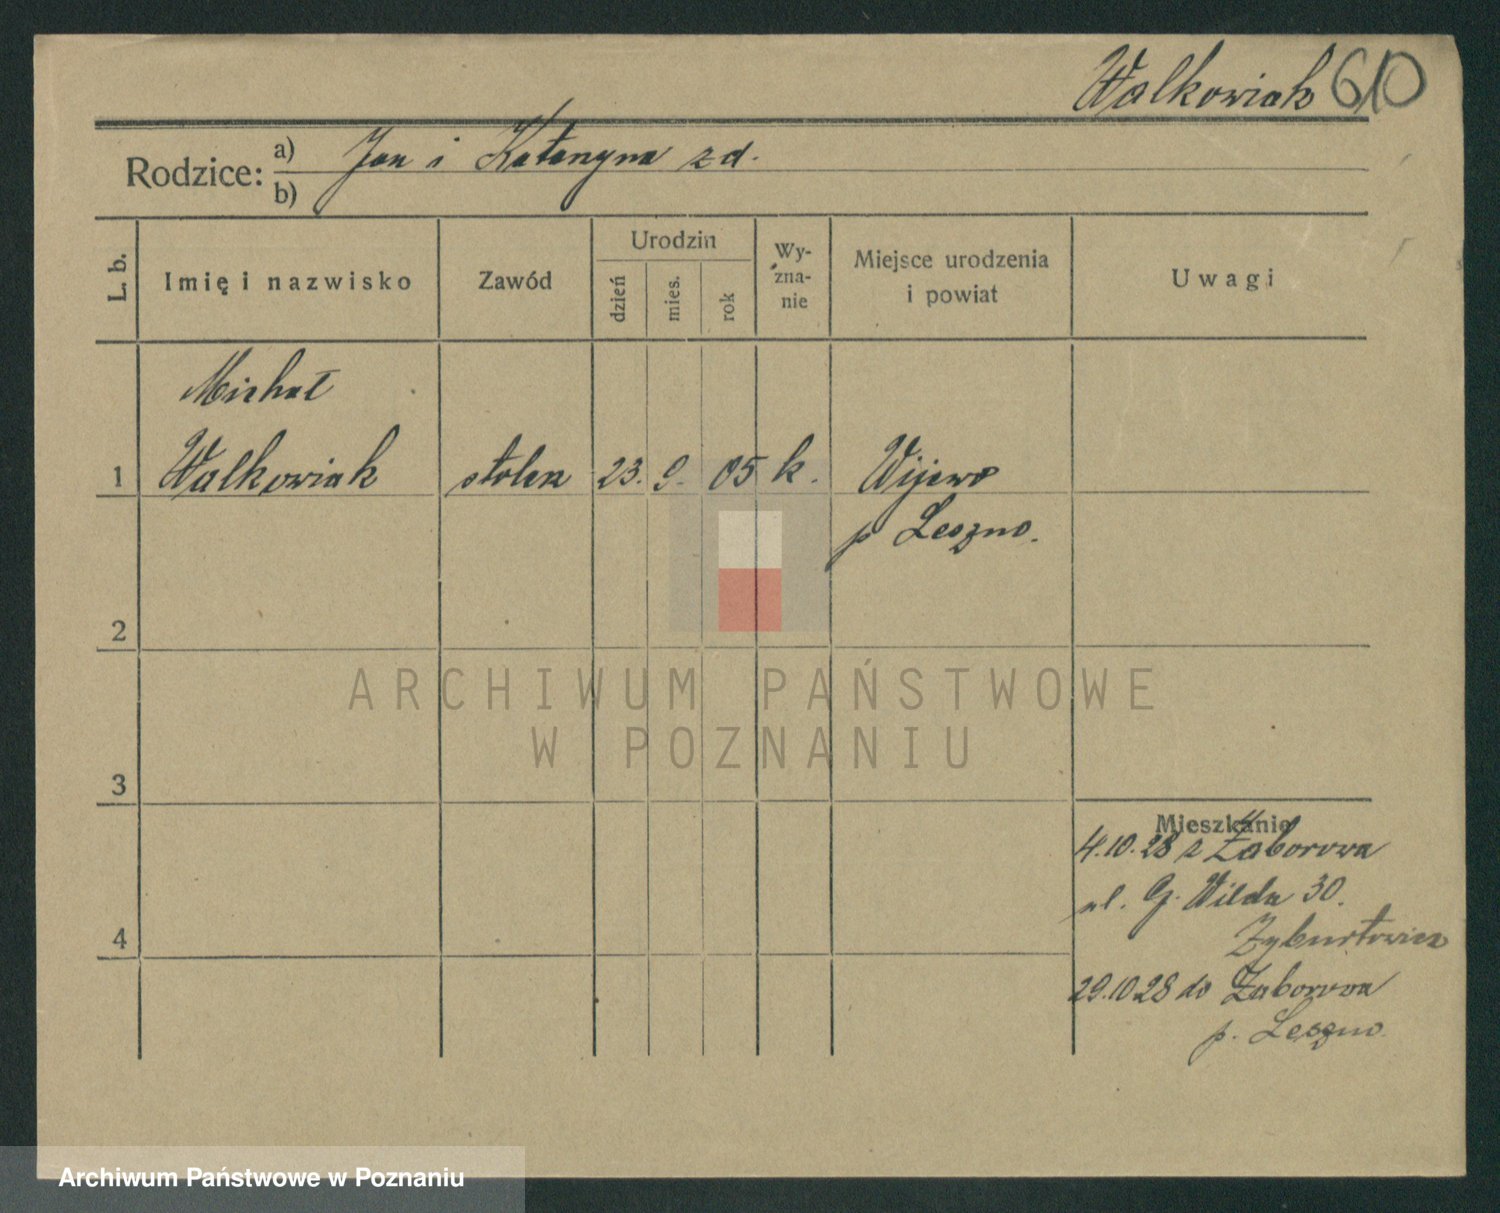 Walkowiak 610
Rodzice: a) Jan i Katarzyna z d.
b)
L. b.
Imię i nazwisko
Zawód
Urodzin
dzień
mies.
rok
Wy-
zna-
nie
Miejsce urodzenia
i powiat
Uwagi
Michał
1 Walkowiak stolarz 23. 9. 05 k. Wijewo
p Leszno.
2
3
4
Mieszkanie
4.10.28 z Zaborowa
ul. G. Wilda 30.
29.10 28 do Zaborowa
p. Leszno
ARCHIWUM PAŃSTWOWE
W POZNANIU
Archiwum Państwowe w Poznaniu